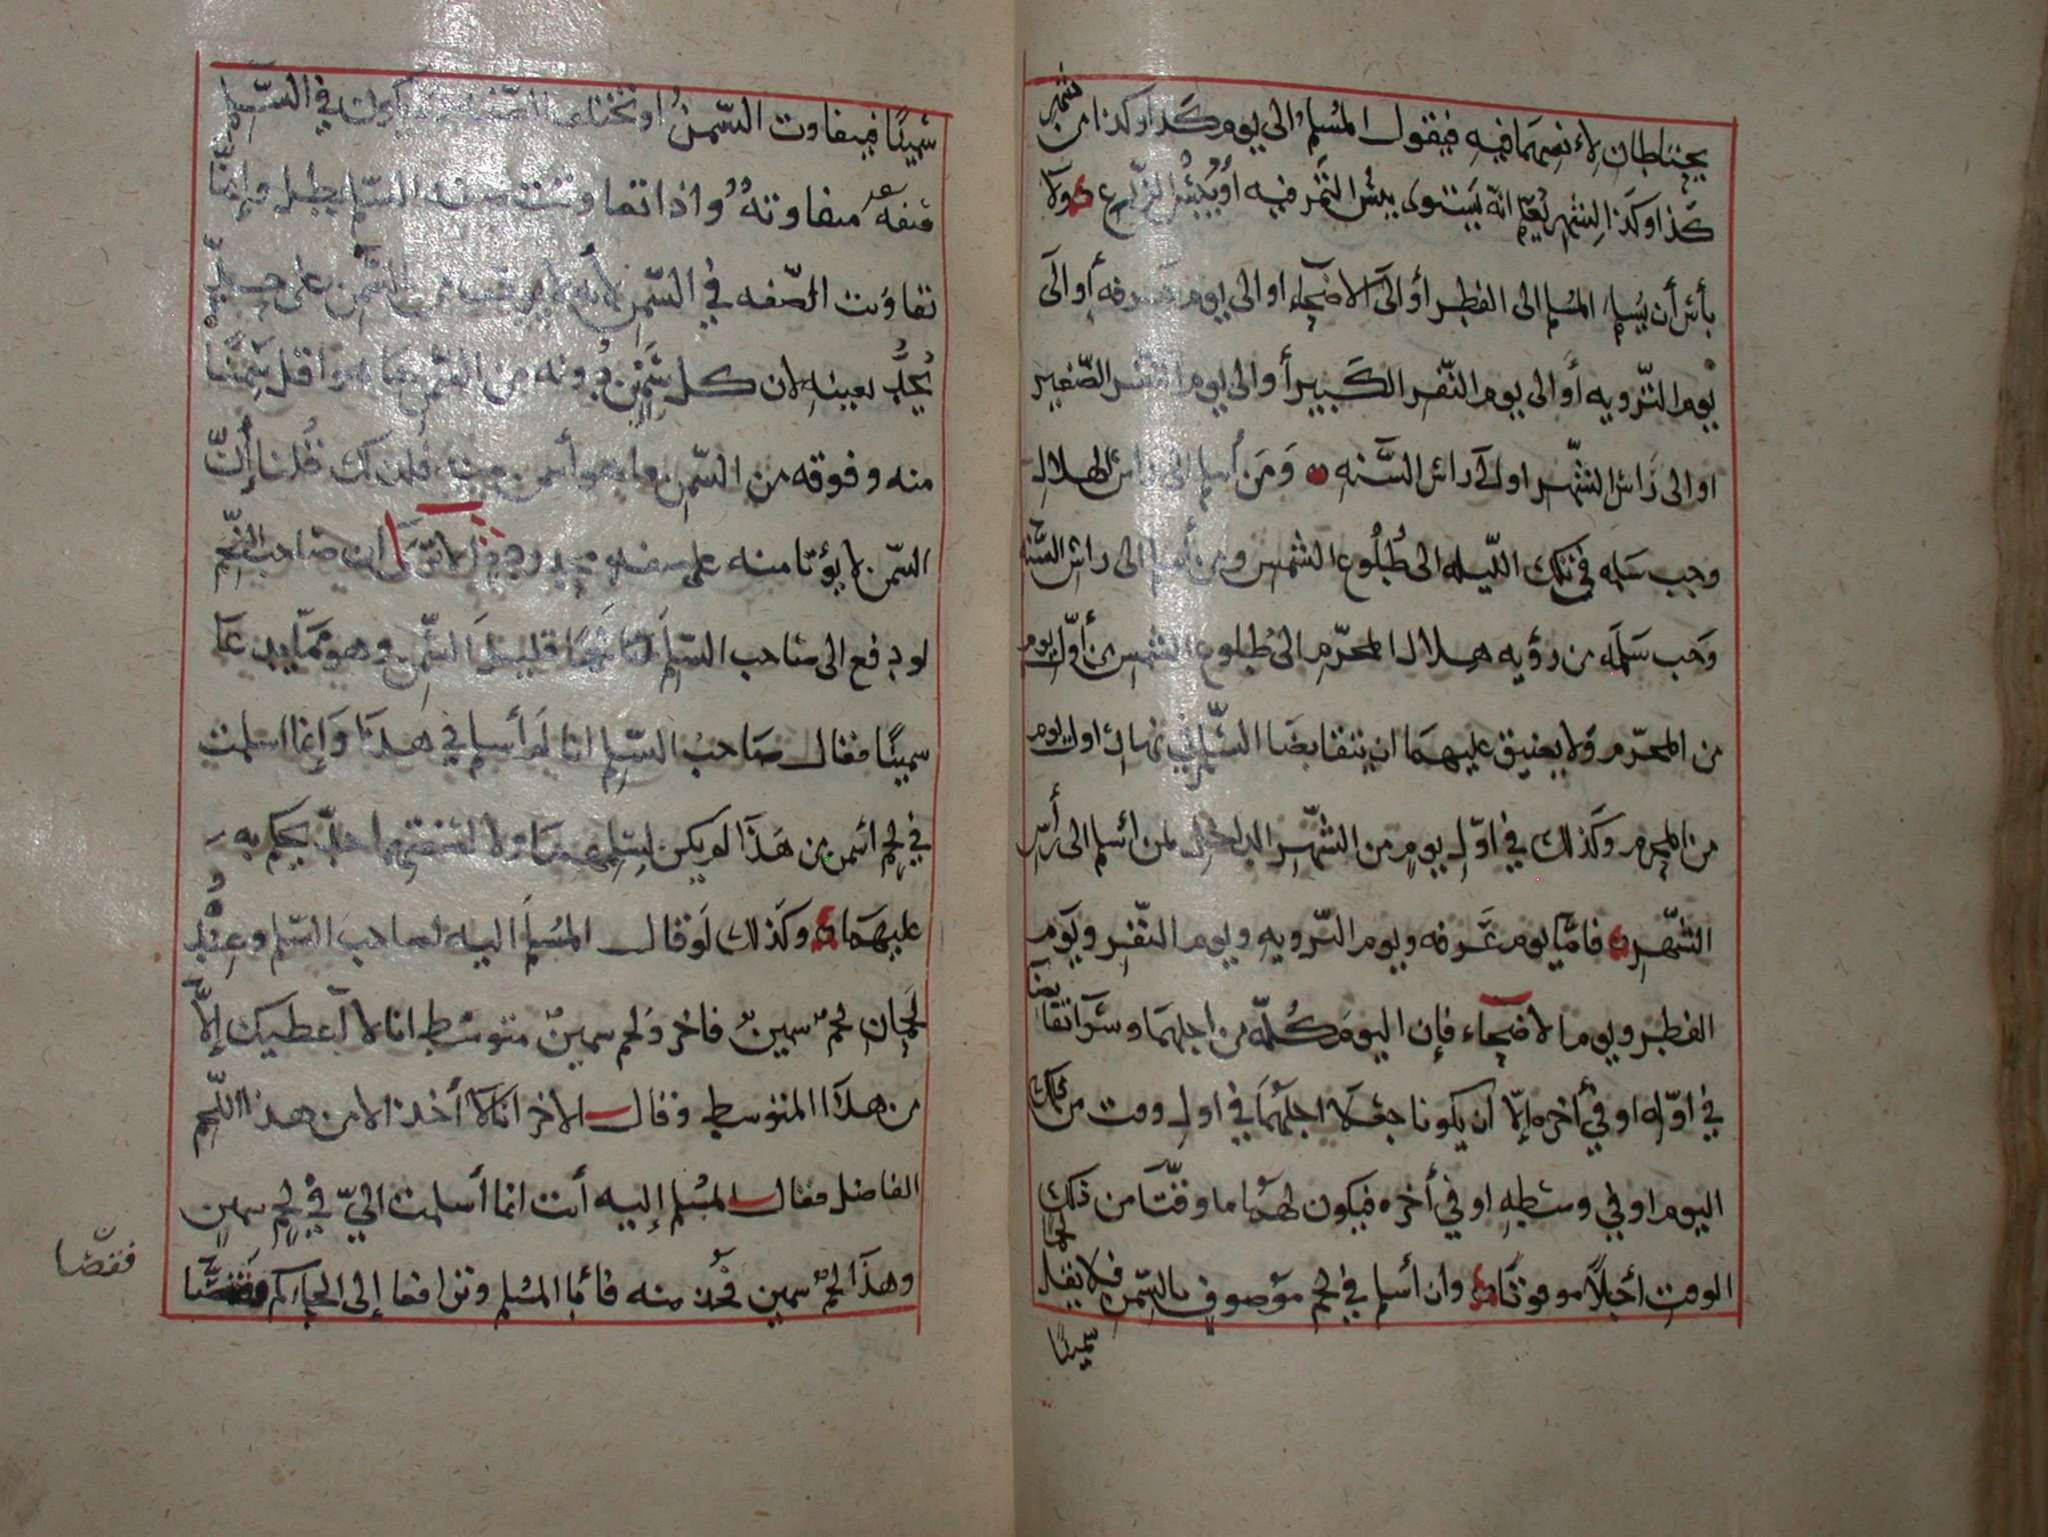 يحتاطان لأنفسهما فيه فيقول المسلم والى يوم كذا وكذا من شهر
كذا وكذا لشهر يعلم انه يستوى يبس التمر فيه أو يبس الزرع ولا
بأس أن يسلم المسلم الى الفطر أو الى الاضحاء او الى يوم عرفه أو الى
يوم الترويه أو الى يوم النفر الكبير أو الى يوم النفر الصغير
او الى رأس الشهر او الى رأس السنه ومن أسلم الى رأس الهلال
وجب سلمه في تلك الليله الى طلوع الشمس ومن أسلم الى رأس السنه
وجب سلمه من رؤيه هلال المحرم الى طلوع الشمس من أول يوم
من المحرم ولا يضيق عليهما ان يتقابضا السلم في نهار اول يوم
من المحرم وكذلك في اول يوم من الشهر الداخل لمن اسلم الى رأس
الشهر فاما يوم عرفه ويوم الترويه ويوم النفر ويوم
الفطر ويوم الاضحاء فإن اليوم كله من اجلهما وشرآئهما
في اوله او في أخره إلا ان يكونا جعلا اجلهما في اول وقت من ذلك
اليوم او في وسطه او في أخره فيكون لهما ما وقتا من ذلك
الوقت أجلاً موقوتا لهما وان أسلم في لحم موصوف بالسمن فلا يقل
سمينًا
سمينًا فيتفاوت السمن او تختلف الصفه فيكون في السلم
صفه متفاوته واذا تفاوتت صفه السلم بطل وإنما
تفاوت الصفه في السمن لأنه لم يوقف من السمن على حد
يحد بعينه لان كل سمن دونه من السمن ما هو اقل سمنًا
منه وفوقه من السمن ما هو أسمن منه فلذلك قلنا إن
السمن لا يؤتا منه على صفه محدوده الا ترى ان صاحب اللحم
لو دفع الى صاحب السلم لحمًا قليل السمن وهو مما يدعا
سمينًا فقال صاحب السلم انا لم أسلم في هذا وإنما اسلمت
في لحم اسمن من هذا لم يكن لسلمهما ولا لصفتهما حد يحكم به
عليهما وكذلك لو قال المسلم اليه لصاحب السلم وعنده
لحمان لحم سمين فاخر ولحم سمين متوسط انا لا أعطيك إلا
من هذا المتوسط وقال الاخر انا لا أخذ الا من هذا اللحم
الفاضل فقال المسلم إليه أنت انما أسلمت اليّ في لحم سمين
وهذا لحم سمين فخذ منه فأبا المسلم وترافعا إلى الحاكم فقصّا
فقصّا